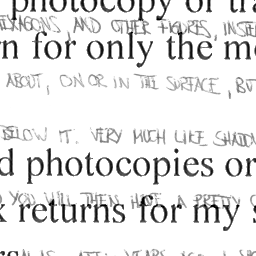 photocopy or tra
AND OTHER FIGURES, INSTE
n for only the mo
ABOUT, ON OR IN THE SURFACE, BUT
BELOW IT. VERY MUCH LIKE SHADOW
d photocopies or
YOU WILL THEN HAVE A PRETTY C
k returns for my s
YEARS